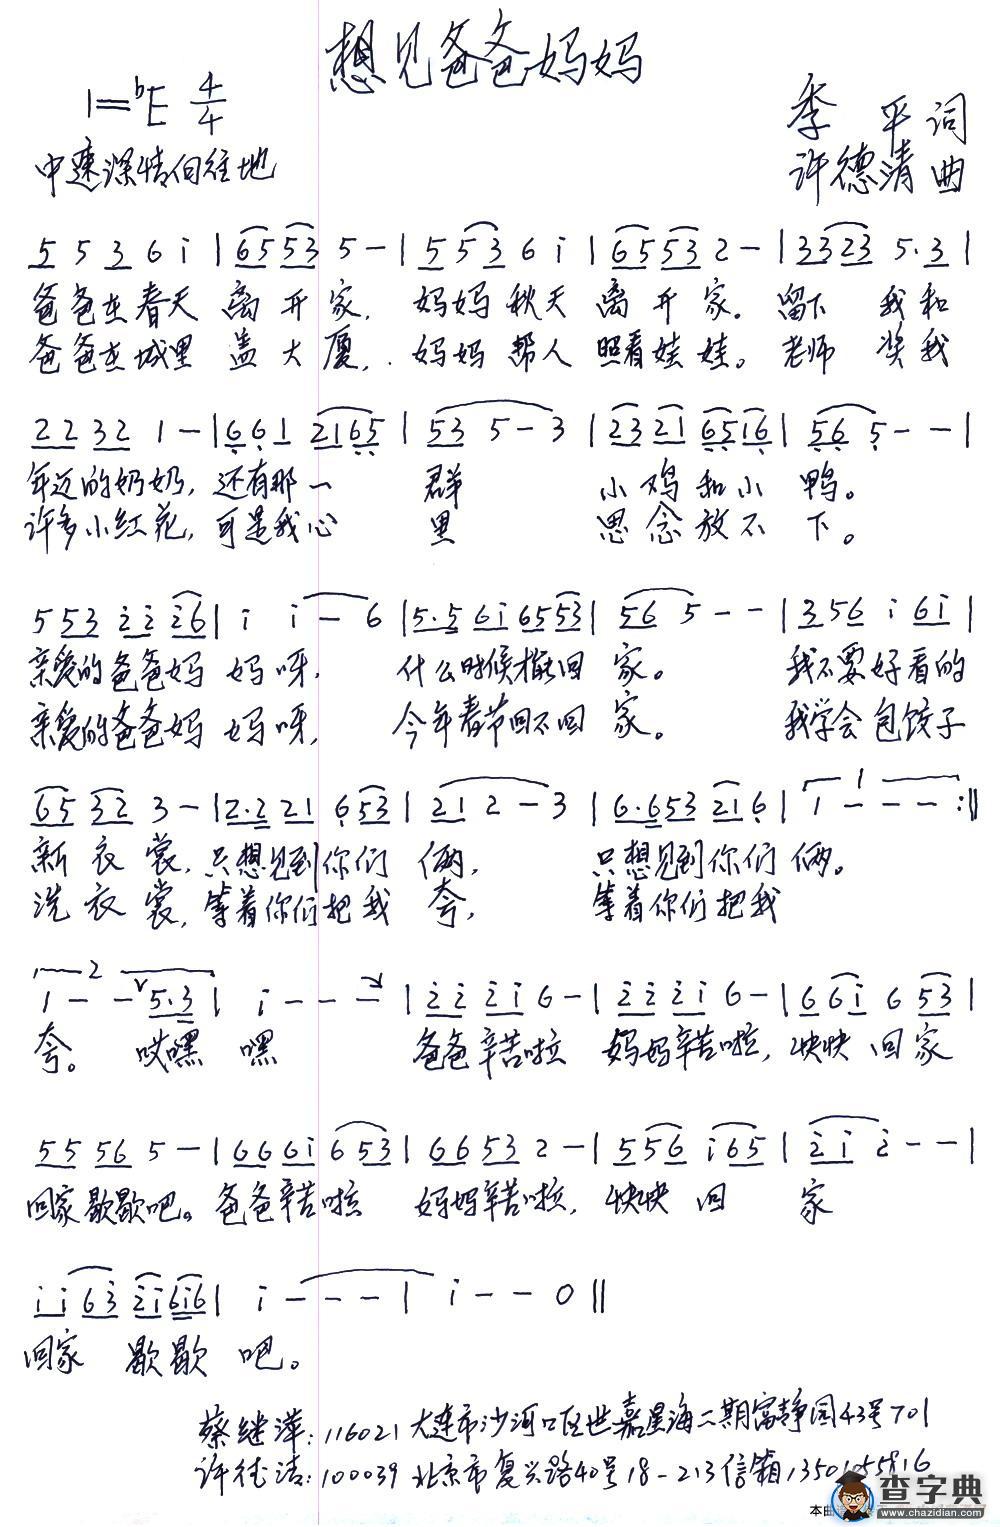 想见爸爸妈妈
1=bE 4/4
季 平 词
中速深情向往地
许德清 曲
5 5 3 6 i | 6553 5 - | 5 53 6 i | 6553 2 - | 3323 5·3 |
爸爸在春天 离开家, 妈妈秋天 离开家。留下 我和
爸爸在城里 盖大厦, 妈妈帮人 照看娃娃。老师 奖我
22 32 1 - | 6 6 1 2165 | 53 5 - 3 | 23 21 6516 | 56 5 - - |
年迈的奶奶, 还有那一 群 小鸡和小 鸭。
许多小红花, 可是我心 里 思念放不 下。
5 53 i i i6 | i i - 6 | 5·5 6i 6553 | 56 5 - - | 356 i 6i |
亲爱的爸爸妈 妈呀, 什么时候才能回 家。 我不要好看的
亲爱的爸爸妈 妈呀, 今年春节回不回 家。 我学会包饺子
65 32 3 - | 2·2 21 6 53 | 21 2 - 3 | 6·653 216 | 1 - - - :||
1
新衣裳, 只想见到你们 俩, 只想见到你们俩。
洗衣裳, 等着你们把我 夸, 等着你们把我
2
1 - - 5·3 | i - - - | i i 2 i 6 - | i i 2 i 6 - | 6 6i 6 53 |
夸。 哎嘿 嘿 爸爸辛苦啦 妈妈辛苦啦, 快快回家
55 56 5 - | 66 6i 6 53 | 66 53 2 - | 5 56 i65 | 2 i 2 - - |
回家歇歇吧。爸爸辛苦啦 妈妈辛苦啦, 快快 回 家
i i 63 2i6i6 | i - - - | i - - 0 ||
回家 歇歇 吧。
蔡继萍: 116021 大连市沙河口区世嘉星海二期富静园43号701
许德清: 100039 北京市复兴路40号18-213信箱
查字典
www.chazidian.com